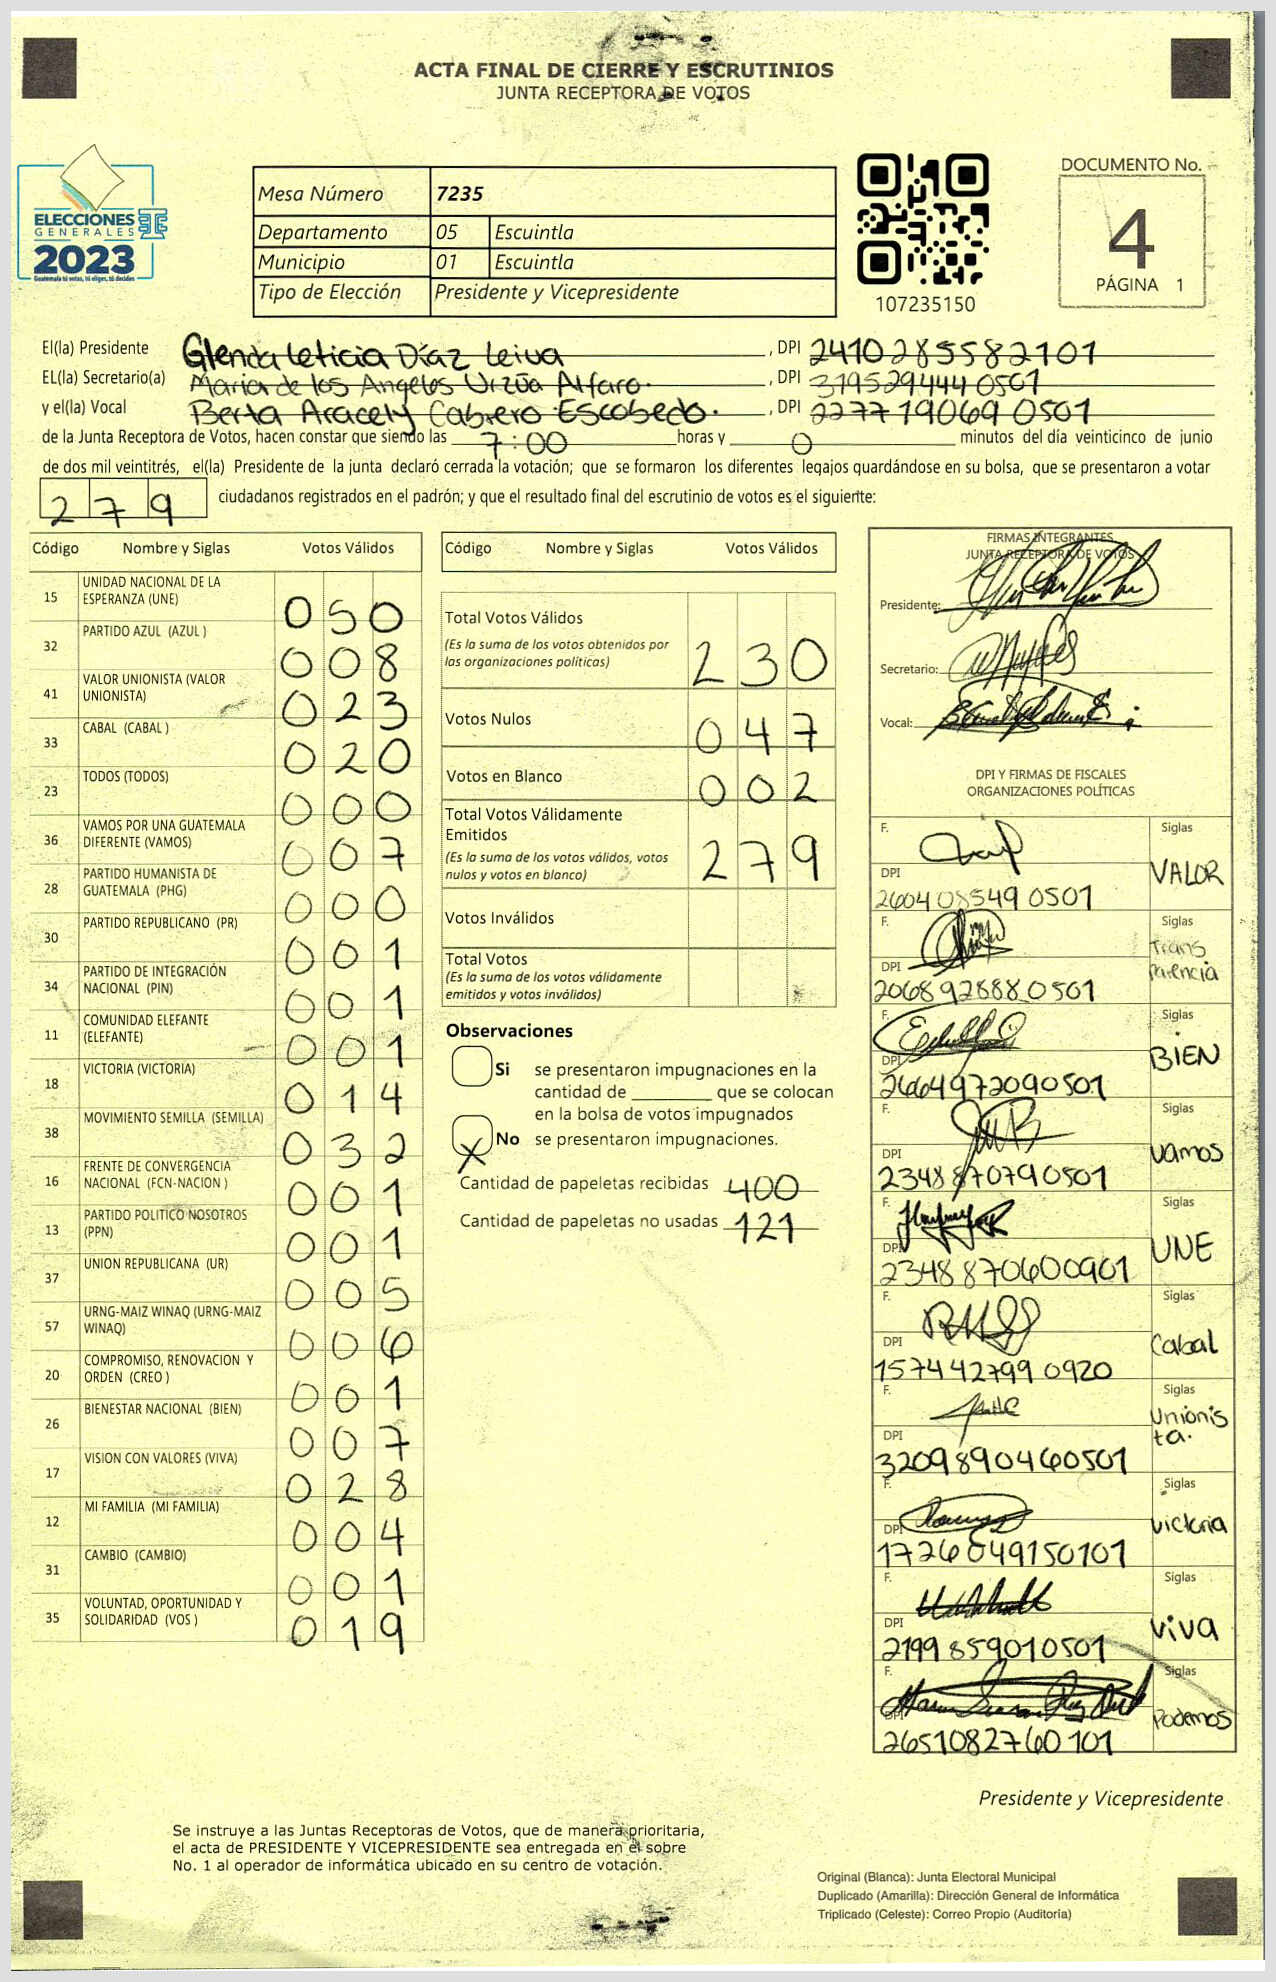 ACTA FINAL DE CIERRE Y ESCRUTINIOS
JUNTA RECEPTORA DE VOTOS
ELECCIONES
GENERALES
2023
Guatemala tú votas, tú eliges, tú decides
Mesa Número 7235
Departamento 05 Escuintla
Municipio 01 Escuintla
Tipo de Elección Presidente y Vicepresidente
107235150
DOCUMENTO No.
4
PÁGINA 1
El(la) Presidente Glenda Leticia Díaz Leiva , DPI 2410285582101
EL(la) Secretario(a) Maria de los Angeles Urzúa Alfaro. , DPI 3195294440501
y el(la) Vocal Berta Aracely Cabrero Escobedo. , DPI 2277190690501
de la Junta Receptora de Votos, hacen constar que siendo las 7:00 horas y 0 minutos del día veinticinco de junio
de dos mil veintitrés, el(la) Presidente de la junta declaró cerrada la votación; que se formaron los diferentes legajos quardándose en su bolsa, que se presentaron a votar
279 ciudadanos registrados en el padrón; y que el resultado final del escrutinio de votos es el siguiente:
Código Nombre y Siglas Votos Válidos
15 UNIDAD NACIONAL DE LA ESPERANZA (UNE) 050
32 PARTIDO AZUL (AZUL ) 008
41 VALOR UNIONISTA (VALOR UNIONISTA) 023
33 CABAL (CABAL ) 020
23 TODOS (TODOS) 000
36 VAMOS POR UNA GUATEMALA DIFERENTE (VAMOS) 007
28 PARTIDO HUMANISTA DE GUATEMALA (PHG) 000
30 PARTIDO REPUBLICANO (PR) 001
34 PARTIDO DE INTEGRACIÓN NACIONAL (PIN) 001
11 COMUNIDAD ELEFANTE (ELEFANTE) 001
18 VICTORIA (VICTORIA) 014
38 MOVIMIENTO SEMILLA (SEMILLA) 032
16 FRENTE DE CONVERGENCIA NACIONAL (FCN-NACION ) 001
13 PARTIDO POLITICO NOSOTROS (PPN) 001
37 UNION REPUBLICANA (UR) 005
57 URNG-MAIZ WINAQ (URNG-MAIZ WINAQ) 006
20 COMPROMISO, RENOVACION Y ORDEN (CREO ) 001
26 BIENESTAR NACIONAL (BIEN) 007
17 VISION CON VALORES (VIVA) 028
12 MI FAMILIA (MI FAMILIA) 004
31 CAMBIO (CAMBIO) 001
35 VOLUNTAD, OPORTUNIDAD Y SOLIDARIDAD (VOS ) 019
Código Nombre y Siglas Votos Válidos
Total Votos Válidos 230
(Es la suma de los votos obtenidos por
las organizaciones políticas)
Votos Nulos 047
Votos en Blanco 002
Total Votos Válidamente
Emitidos 279
(Es la suma de los votos válidos, votos
nulos y votos en blanco)
Votos Inválidos
Total Votos
(Es la suma de los votos válidamente
emitidos y votos inválidos)
Observaciones
Si se presentaron impugnaciones en la
cantidad de ________ que se colocan
en la bolsa de votos impugnados
X No se presentaron impugnaciones.
Cantidad de papeletas recibidas 400
Cantidad de papeletas no usadas 121
FIRMAS INTEGRANTES
JUNTA RECEPTORA DE VOTOS
Presidente:
Secretario:
Vocal:
DPI Y FIRMAS DE FISCALES
ORGANIZACIONES POLÍTICAS
F. Siglas
DPI VALOR
2604085490501
F. Siglas
DPI Transparencia
2068928880501
F. Siglas
DPI BIEN
2664972090501
F. Siglas
DPI vamos
2348870790501
F. Siglas
DPI UNE
2348870600901
F. Siglas
DPI Cabal
1574427990920
F. Siglas
DPI Unionista.
3209890460501
F. Siglas
DPI victoria
1726049150101
F. Siglas
DPI viva
2199859010501
F. Siglas
DPI Podemos
2651082760101
Presidente y Vicepresidente
Se instruye a las Juntas Receptoras de Votos, que de manera prioritaria,
el acta de PRESIDENTE Y VICEPRESIDENTE sea entregada en el sobre
No. 1 al operador de informática ubicado en su centro de votación.
Original (Blanca): Junta Electoral Municipal
Duplicado (Amarilla): Dirección General de Informática
Triplicado (Celeste): Correo Propio (Auditoría)